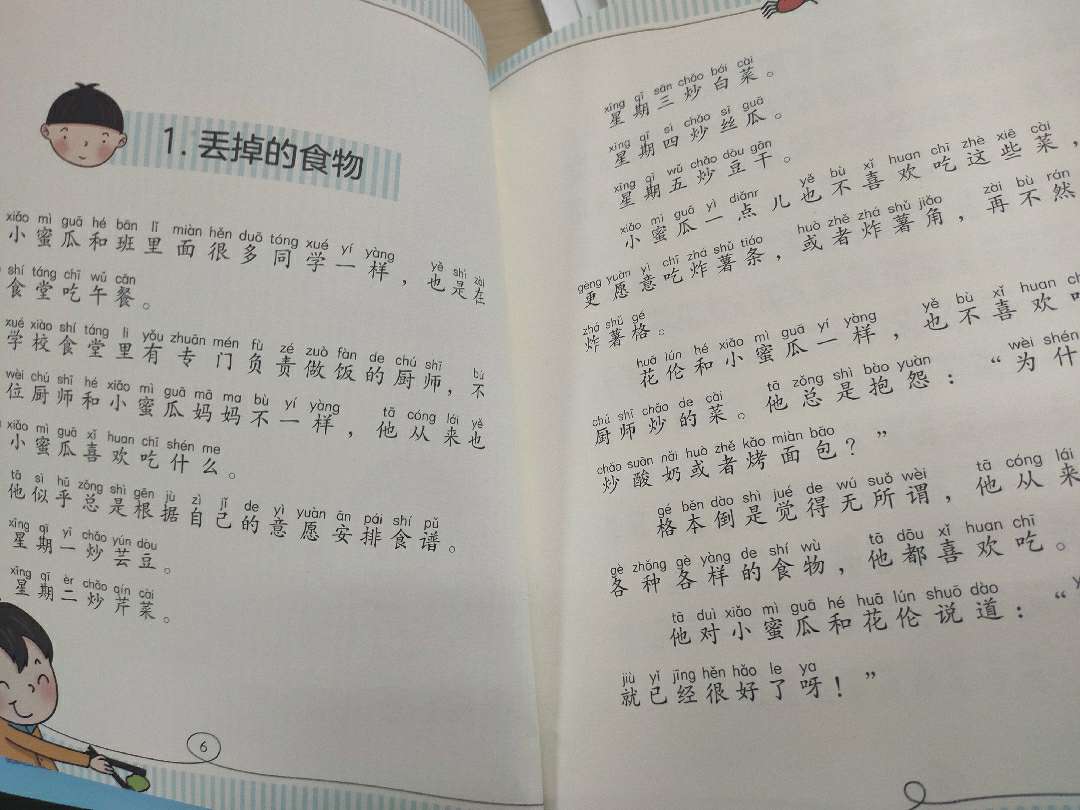 1. 丢掉的食物
xiǎo mì guā hé bān lǐ miàn hěn duō tóng xué yí yàng yě shì zài
小蜜瓜和班里面很多同学一样，也是在
shí táng chī wǔ cān
食堂吃午餐。
xué xiào shí táng lǐ yǒu zhuān mén fù zé zuò fàn de chú shī bú
学校食堂里有专门负责做饭的厨师，不
wèi chú shī hé xiǎo mì guā mā ma bù yí yàng tā cóng lái yě
位厨师和小蜜瓜妈妈不一样，他从来也
xiǎo mì guā xǐ huan chī shén me
小蜜瓜喜欢吃什么。
tā sì hū zǒng shì gēn jù zì jǐ de yì yuàn ān pái shí pǔ
他似乎总是根据自己的意愿安排食谱。
xīng qī yī chǎo yún dòu
星期一炒芸豆。
xīng qī èr chǎo qín cài
星期二炒芹菜。
6
xīng qī sān chǎo bái cài
星期三炒白菜。
xīng qī sì chǎo sī guā
星期四炒丝瓜。
xīng qī wǔ chǎo dòu gān
星期五炒豆干。
xiǎo mì guā yì diǎnr yě bù xǐ huan chī zhè xiē cài
小蜜瓜一点儿也不喜欢吃这些菜，
gèng yuàn yì chī zhá shǔ tiáo huò zhě zhá shǔ jiǎo zài bù rán
更愿意吃炸薯条，或者炸薯角，再不然
zhá shǔ gé
炸薯格。
huā lún hé xiǎo mì guā yí yàng yě bù xǐ huan chī
花伦和小蜜瓜一样，也不喜欢吃
chú shī chǎo de cài tā zǒng shì bào yuàn wèi shén
厨师炒的菜。他总是抱怨：“为什
chǎo suān nǎi huò zhě kǎo miàn bāo
炒酸奶或者烤面包？”
gé běn dào shì jué de wú suǒ wèi tā cóng lái
格本倒是觉得无所谓，他从来
gè zhǒng gè yàng de shí wù tā dōu xǐ huan chī
各种各样的食物，他都喜欢吃。
tā duì xiǎo mì guā hé huā lún shuō dào
他对小蜜瓜和花伦说道：“
jiù yǐ jīng hěn hǎo le ya
就已经很好了呀！”